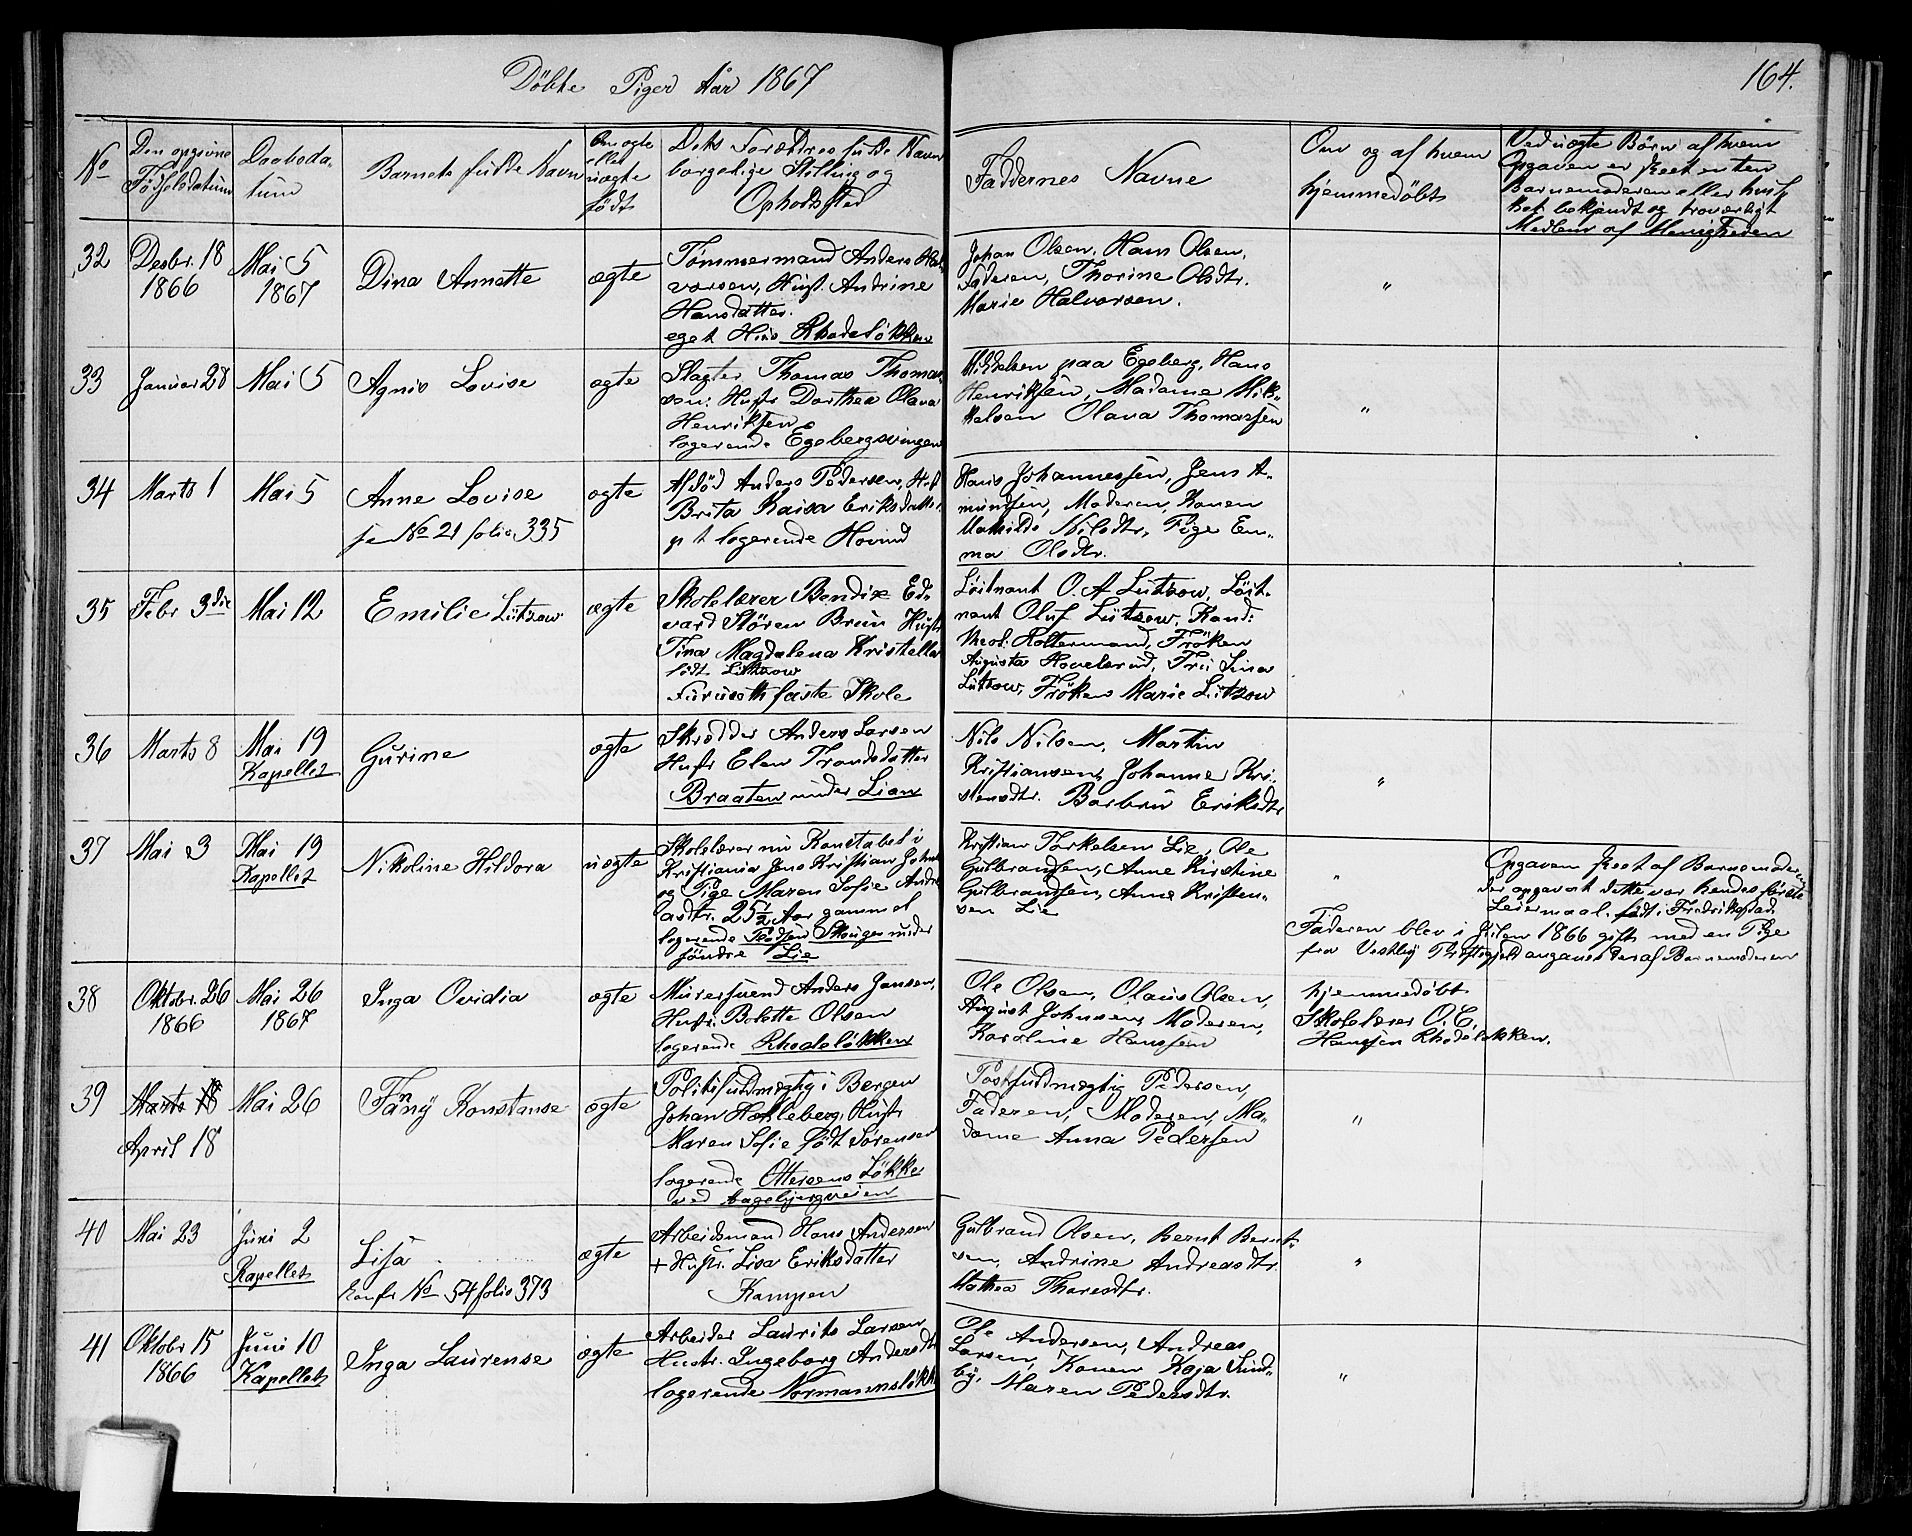 Döbte Piger Aar 1867
164.
No
Den opgivne
Födselsdatum
Daabsda-
tum
Barnets fulde Navn
Om ægte
eller
uægte
födt
Dets Forældres fulde Navn
borgelige Stilling og
Opholdssted
Faddernes Navne
Om og af hvem
hjemmedöbt
Ved uægte Börn af hvem
Opgaven er skeet enten
Barnemoderen eller
bekjendt og troværdigt
Medlem af Menigheden
32
Desbr. 18
1866
Mai 5
1867
Dina Annette
ægte
Tömmermand Anders Hal-
vorsen, Hust. Andrine
Hansdatter.
eget Hus Rhodelökken
Johan Olsen, Hans Olsen,
Faderen, Thorine Olsdtr.
Marie Halvorsen.
"
33
Januar 28
Mai 5
Agnis Lovise
ægte
Slagter Thomas Thomas-
sen. Hustr Dorthea Olava
Henriksen
logerende Egebergsvingen
Mikkelsen paa Egeberg, Hans
Henriksen, Madame Mik-
kelsen Olava Thomassen
"
34
Marts 1
Mai 5
Anne Lovise
No 21 folio 335
ægte
Afdöd Anders Pedersen,
Brita Kaisa Eriksdatter
p t logerende Hovind
Hans Johannessen, Jens A-
mundsen, Moderen, Konen
Mathilde Nilsdtr, Pige Em-
ma Olsdtr.
35
Febr 3die
Mai 12
Emilie Lützow
ægte
Skolelærer Bendix Ed-
vard Stören Brun Hustr
Tina Magdalena Kristella
födt Lützow
Furuseth faste Skole
Löitnant O. A Lützow, Löit-
nant Oluf Lützow, Kand:
theol: Holtermand, Fröken
Augusta Hovelsrud, Fru Lina
Lützow, Fröken Marie Lützow
"
36
Marts 8
Mai 19
Kapellet
Gurine
ægte
Skrædder Anders Larsen
Hustr Elen Trondsdatter
Braaten under Lian
Nils Nilsen, Martin
Kristiansen, Johanne Kri-
stensdtr. Barbru Eriksdtr
"
37
Mai 3
Mai 19
Kapellet
Nikoline Hildora
uægte
Skolelærer nu Konstabel i
Kristiania Jens Kristian
og Pige Maren Sofie
25½ Aar gammel
logerende Skougen under
söndre Lie
Kristian Torkelsen Lie, Ole
Gulbrandsen, Anne Kirstine
Gulbrandsen, Anne Kristen-
sen Lie
"
Opgaven skeet af Barnemoderen
der opgav at dette var hendes förste
Leiermaal. födt i Fredrikstad.
Faderen blev i Julen 1866 gift med en Pige
fra Vestby Præstegjeld angav der af Barnemoderen
38
Oktobr. 26
1866
Mai 26
1867
Inga Ovidia
ægte
Murersvend Anders Jansen,
Hustr. Bolette Olsen
logerende Rhodelökken
Ole Olsen, Olaus Olsen,
August Johnsen, Moderen,
Karoline Hanssen
hjemmedöbt
Skolelærer O. C.
Hanssen Rhodelökken.
39
Marts 18
April 18
Mai 26
Fanny Konstanse
ægte
Politifuldmægtig i Bergen
Johan Hakleberg, Hustr
Maren Sofie födt Sörensen
logerende Ottersens Lökke
ved Aagebjergveien
Postfuldmægtig Pedersen,
Faderen, Moderen, Ma-
dame Anna Pedersen
"
40
Mai 23
Juni 2
Kapellet
Lisa
konfr No 54 folio 373
ægte
Arbeidsmand Hans Andersen
+ Hustr. Lisa Eriksdatter
Kampen
Gulbrand Olsen, Bernt Bernt-
sen, Andrine Andreasdtr.
Mathea Thoresdtr.
"
41
Oktobr 15
1866
Juni 10
Kapellet
Inga Laurense
ægte
Arbeider Laurits Larsen
Hustr. Ingeborg Andersdtr
logerende Normannslökken
Ole Andersen, Andreas
Larsen, Konen Kaja Sund-
by, Maren Pedersdtr.
"